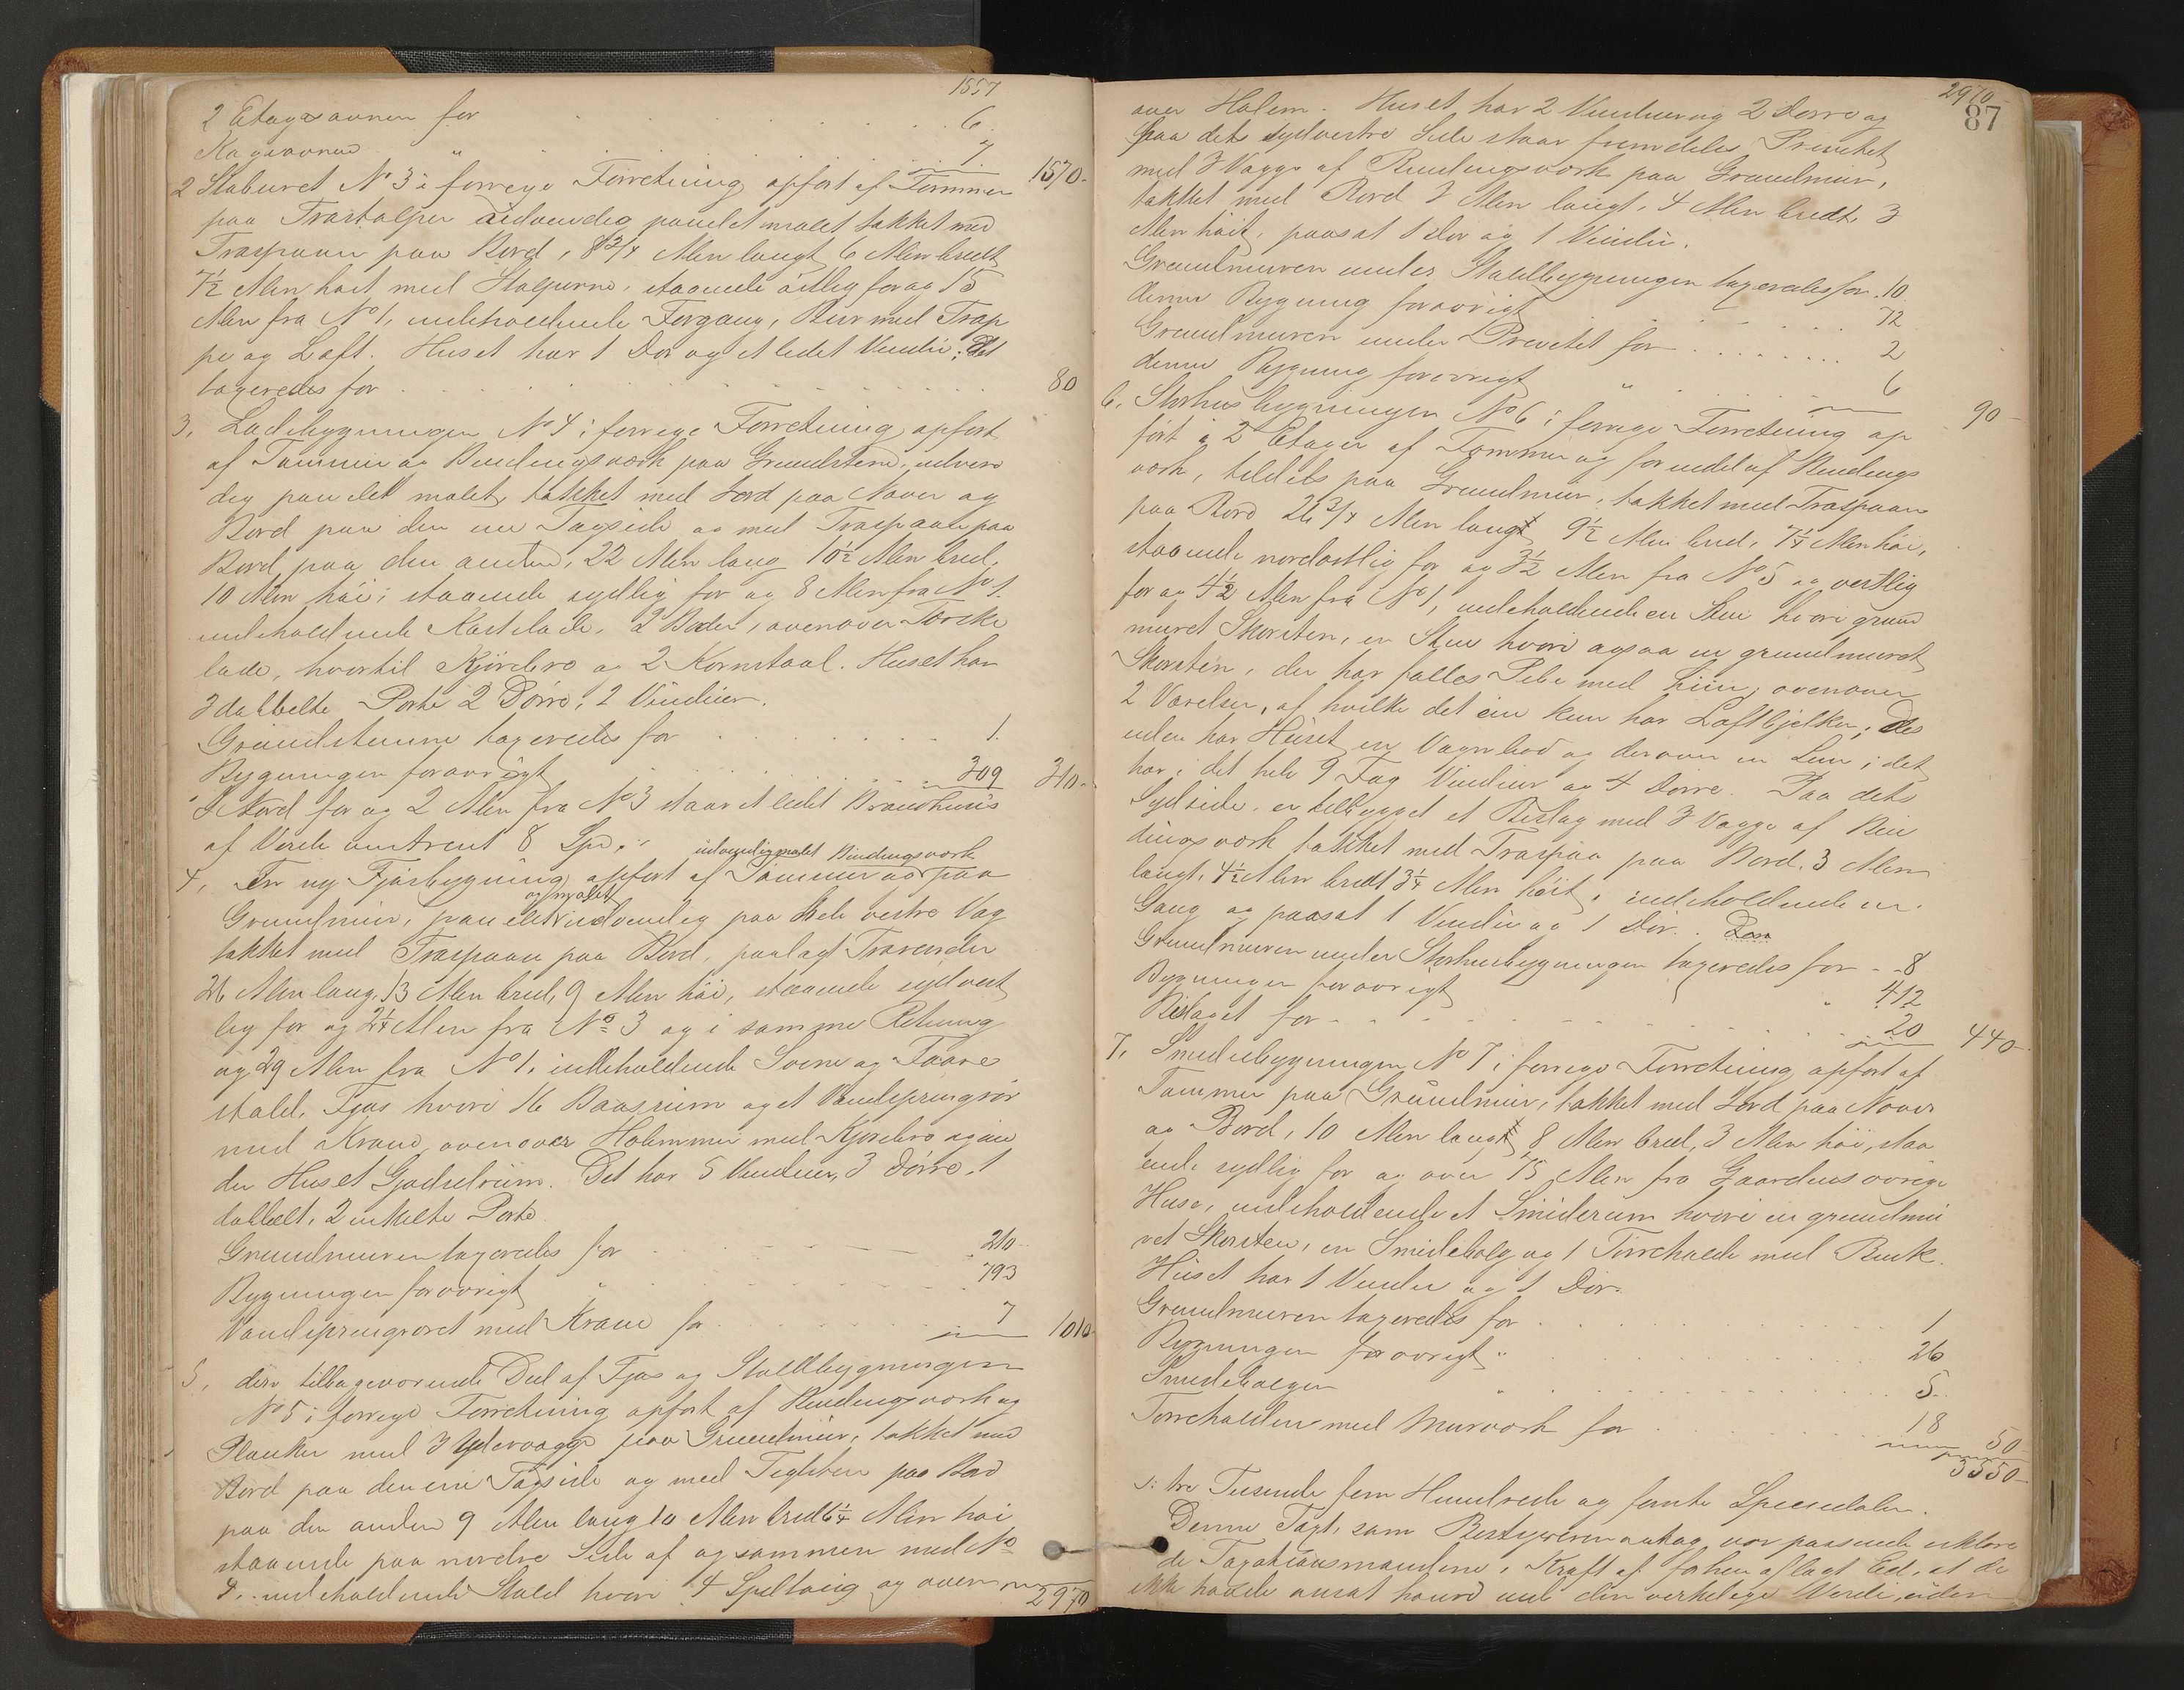 1557
2 Etagesovnen for . . . . . . 6.
Kogeovnen " . . . . . . 7. 1570.
2 Staburet No 3 i forrige Forretning opført af Tømmer
paa Træstolper udvendig panelet malet tækket med
Træspaan paa Bord, 8 3/4 Alen langt 6 Alen bredt
7 1/2 Alen høit med Stolperne, staaende østlig for og 15
Alen fra No 1, indeholdende Forgang, Bur med Trap
pe og Loft. Huset har 1 Dør og et lidet Vindu; Det
taxeredes for . . . . . . 80
3, Ladebygningen No 4 i forrige Forretning opført
af Tømmer og Bindingsværk paa Grundstene, udven
dig panelet malet, tækket med Jord paa Næver og
Bord paa den ene Tagside og med Træspaan paa
Bord paa den anden, 22 Alen lang 10 1/2 Alen bred,
10 Alen høi; staaende sydlig for og 8 Alen fra No 1.
indeholdende Kastelade, 2 Boder, ovenover Tørske
lade, hvortil Kjørebro og 2 Kornstaal. Huset har
3 dobbelte Porte 2 Dørre, 2 Vinduer.
Grundstenene taxeredes for . . . . 1.
Bygningen forøvrigt . . . . 309 310.
I Nord for og 2 Alen fra No 3 staar et lidet Brændhuus
af Værdi omtrent 8 Spd.
udvendig malet Bindingsværk
4, En ny Fjøsbygning opført af Tømmer og paa
og malet
Grundmuur, panelet udvendig paa hele vestre Væg
tækket med Træspaan paa Bord, paalagt Tagrender
26 Alen lang, 13 Alen bred, 9 Alen høi, staaende sydvest
lig for og 2 1/4 Alen fra No 3 og i samme Retning
og 29 Alen fra No 1, indeholdende Svine og Faare
stald, Fjøs hvori 16 Baasrum og et Vandspringrør
med Krane, ovenover Høhimmer med Kjørebro og un
der Huset Gjødselrum. Det har 5 Vinduer, 3 Dørre, 1
dobbelt, 2 enkelte Porte.
Grundmuren taxeredes for . . . 210
Bygningen forøvrigt " . . . 793
Vandspringrøret med Krane for . . . 7 1010.
5, den tilbageværende Deel af Fjøs og Staldbygningen
No 5 i forrige Forretning opført af Bindingsværk og
Planker med 3 Ydervægge paa Grundmuur, tækket med
Bord paa den ene Tagside og med Teglsten paa Bord
paa den anden 9 Alen lang 10 Alen bred 6 1/4 Alen høi
staaende paa nordre Side af og sammen med No
4. indeholdende Stald hvori 4 Spiltoug og oven
2970
2970
87
over Hølem. Huset har 2 Vinduer og 2 Dørre og
paa dets sydvestre Side staar fremdeles Privetet
med 3 Vægge af Bindingsværk paa Grundmur,
tækket med Bord 3 Alen langt, 4 Alen bredt, 3
Alen høit, paasat 1 Dør og 1 Vindu.
Grundmuren under Staldbygningen taxeredes for 10
denne Bygning forøvrigt . . . . 72
Grundmuren under Privetet for . . . . 2
denne Bygning forøvrigt " . . . . 6 90
6, Størhusbygningen No 6 i forrige Forretning op
ført i 2 Etager af Tømmer og for endel af Bindings
værk, tildels paa Grundmur, tækket med Træspaan
paa Bord 26 3/4 Alen lang 9 1/2 Alen bred, 7 1/4 Alen høi,
staaende nordostlig for og 3 1/2 Alen fra No 5 og vestlig
for og 4 1/2 Alen fra No 1, indeholdende en Stue hvori grund
muret Skorsten, en Stue hvori ogsaa en grundmuret
Skorsten, der har fælles Pibe med hiin; ovenover
2 Værelser, af hvilke det ene kun har Loftbjelker; Des
uden har Huset en Vognbod og derover en Lem; det
har i det hele 9 Fag Vinduer og 4 Dørre. Paa dets
Sydside er tilbygget et Bislag med 3 Vægge af Bin
dingsværk tækket med Træspaan paa Bord, 3 Alen
langt, 4 1/2 Alen bredt 3 1/4 Alen høit, indeholdende en
Gang og paasat 1 Vindu og 1 Dør.
Grundmuren under Størhusbygningen taxeredes for . . 8
Bygningen forøvrigt " 412
Bislaget for . . . . 20 440
7, Smedebygningen No 7 i forrige Forretning opført af
Tømmer paa Grundmur, tækket med Jord paa Næver
og Bord, 10 Alen lang, 8 Alen bred, 3 Alen høi, staa
ende sydlig for og over 75 Alen fra Gaardens øvrige
Huse, indeholdende et Smiderum hvori en grundmu
ret Skorsten, en Smidebælg og 1 Tørrehælde med Bænk.
Huset har 1 Vindu og 1 Dør.
Grundmuren taxeredes for . . . . 1
Bygningen forøvrigt " . . . . 26
Smedebælgen " . . . . 5.
Tørrehælden med Murværk for . . . . 18 50
3550
D: tre Tusende fem Hundrede og femti Speciedaler.
Denne Taxt, som Bestyreren antog var passende erklære
de Taxationsmændene, i Kraft af forhen aflagt Eed, at de
ikke havde ansat høiere end den virkelige Værdi, uden